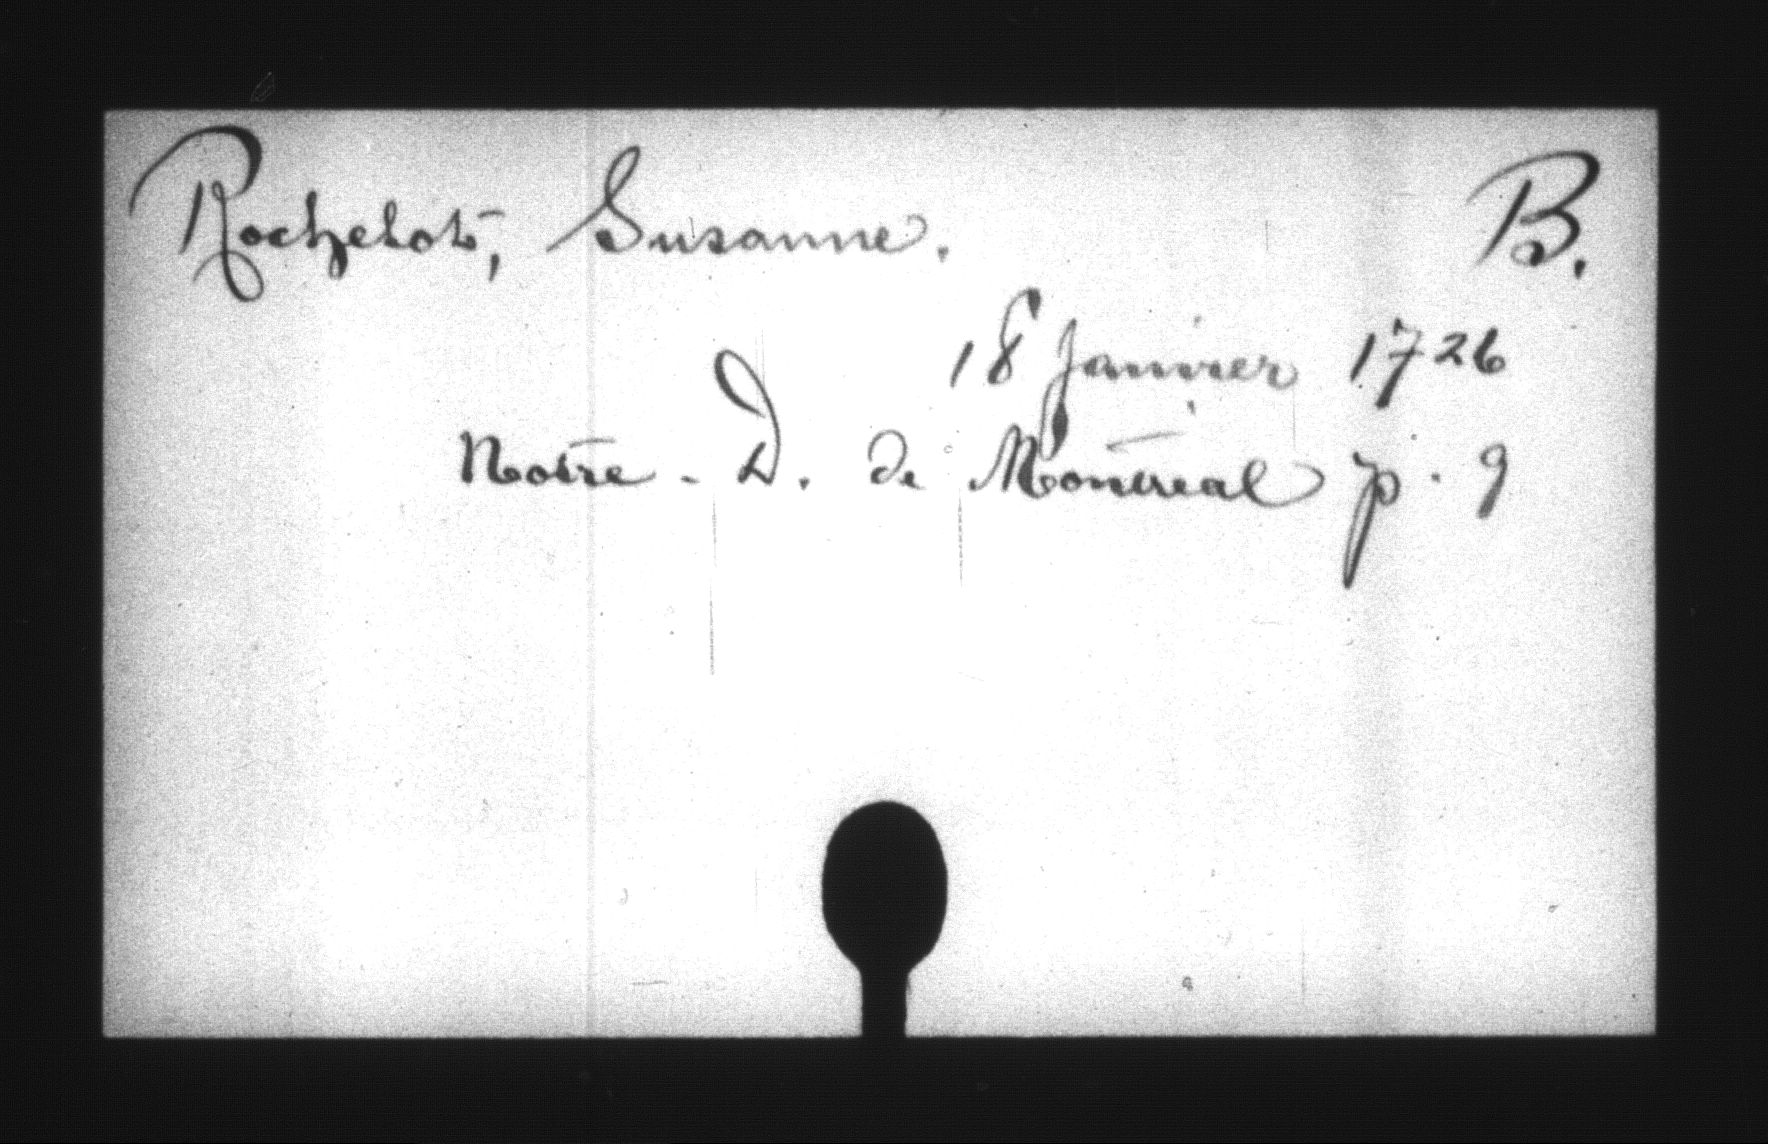 Rochelot, Susanne. B.
18 Janvier 1726
Notre-D. de Montreal p. 9